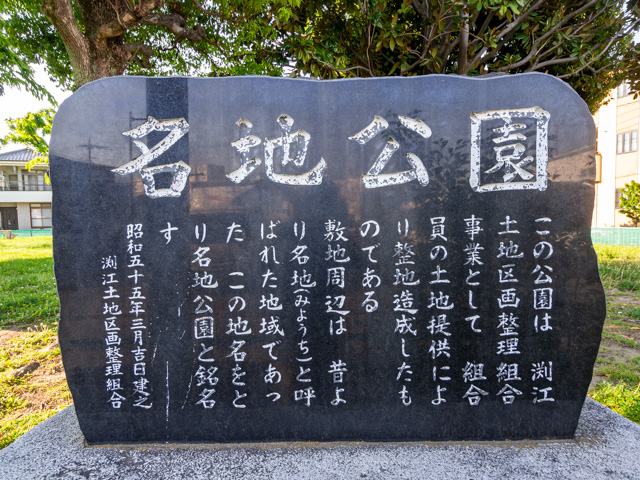 名地公園
この公園は　渕江
土地区画整理組合
事業として　組合
員の土地提供によ
り整地造成したも
のである
敷地周辺は　昔よ
り名地(みようち)と呼
ばれた地域であっ
た　この地名をと
り名地公園と銘名
す
昭和五十五年三月吉日建之
渕江土地区画整理組合